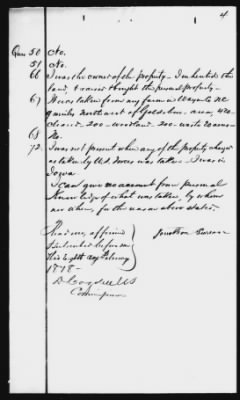 4
Ques 50 No.
51 No.
66 I was the owner of the property. I inherited the
land, & raised & bought the personal property.
67 It was taken from my farm in Wayne Co NC
9 miles northeast of Goldsboro. area, 420
cleared - 200 - woodland - 200 - waste 20 acres
68 No.
72. I was not present when any of the property charged
as taken by U.S. forces was taken. I was in
Iowa
I can give no account from personal
knowledge of what was taken, by whom
nor when, for the reason above stated.
Read over, affirmed
& subscribed before me
this Eighth day February
1878 -
Jonathan